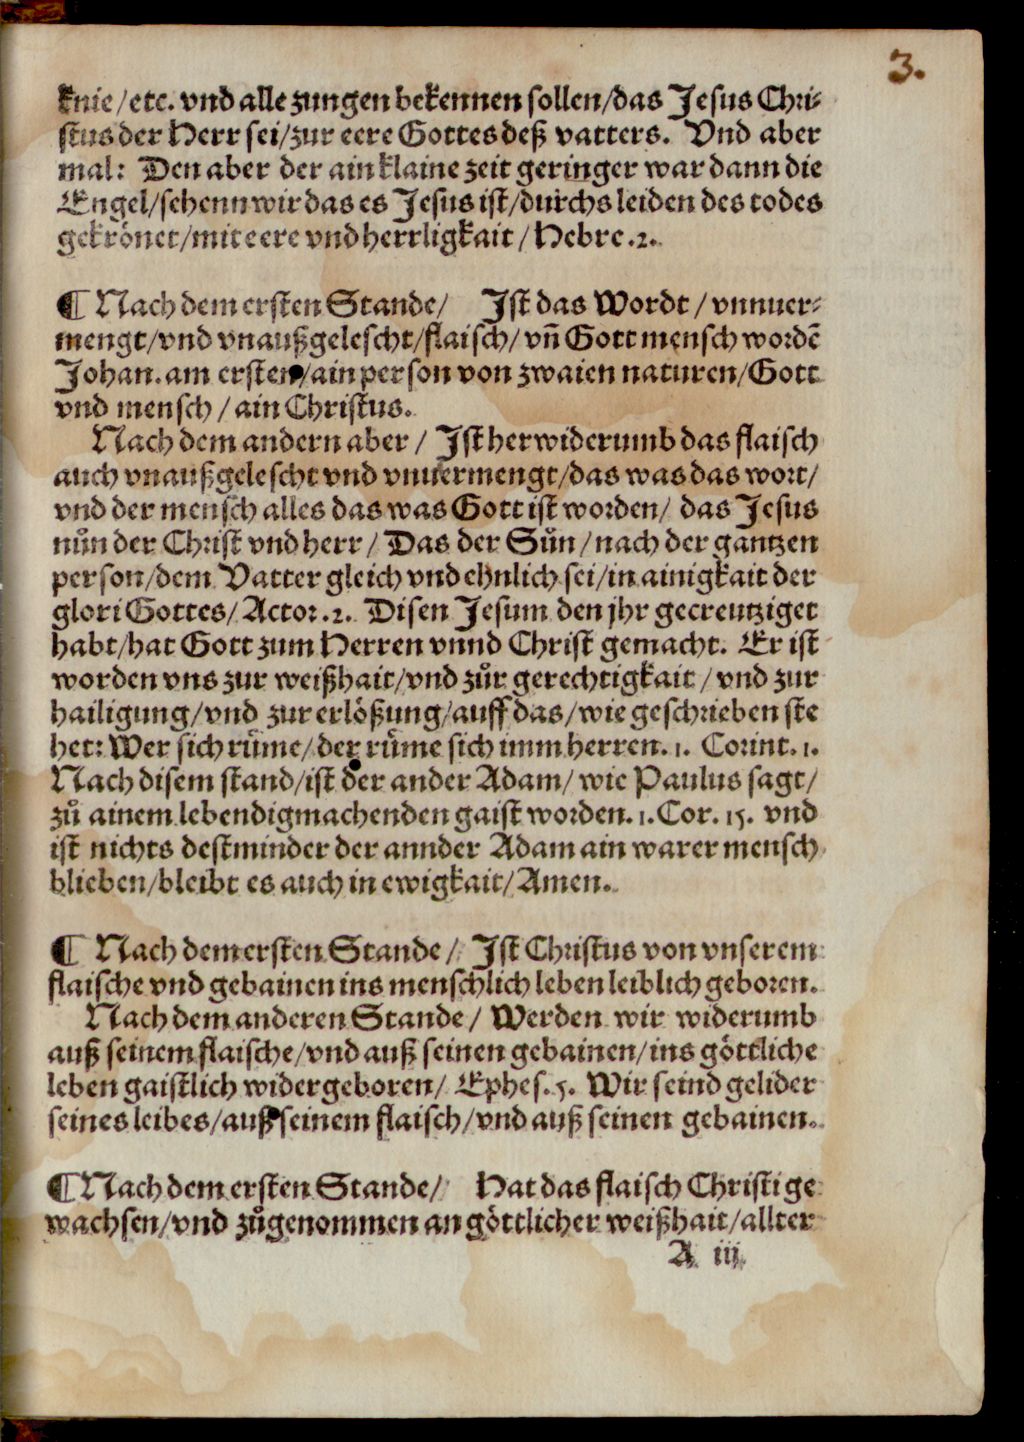 3.
knie/etc. vnd alle zungen bekennen sollen/das Jesus Chri⸗
stus der Herr sei/zur eere Gottes deß vatters. Vnd aber
mal: Den aber der ain klaine zeit geringer war dann die
Engel/sehenn wir das es Jesus ist/durchs leiden des todes
gekrönet/mit eere vnd herrligkait/Hebre.2.
¶ Nach dem ersten Stande/ Ist das Wordt/vnnuer⸗
mengt/vnd vnaußgelescht/flaisch/vñ Gott mensch wordẽ
Johan. am ersten/ain person von zwaien naturen/Gott
vnd mensch/ain Christus.
Nach dem andern aber/ Ist herwiderumb das flaisch
auch vnaußgelescht vnd vnuermengt/das was das wort/
vnd der mensch alles das was Gott ist worden/ das Jesus
nůn der Christ vnd herr/ Das der Sůn/nach der gantzen
person/dem Vatter gleich vnd ehnlich sei/in ainigkait der
glori Gottes/Actor.2. Disen Jesum den jhr gecreutziget
habt/hat Gott zum Herren vnnd Christ gemacht. Er ist
worden vns zur weißhait/vnd zůr gerechtigkait/vnd zur
hailigung/vnd zur erlößung/auff das/wie geschrieben ste
het: Wer sich rüme/der rüme sich imm herren.1. Corint.1.
Nach disem stand/ist der ander Adam/wie Paulus sagt/
zů ainem lebendigmachenden gaist worden.1.Cor.15. vnd
ist nichts destminder der annder Adam ain warer mensch
blieben/bleibt es auch in ewigkait/Amen.
¶ Nach dem ersten Stande/ Ist Christus von vnserem
flaische vnd gebainen ins menschlich leben leiblich geboren.
Nach dem anderen Stande/ Werden wir widerumb
auß seinem flaische/vnd auß seinen gebainen/ins göttliche
leben gaistlich widergeboren/ Ephes.5. Wir seind gelider
seines leibes/auß seinem flaisch/vnd auß seinen gebainen.
¶ Nach dem ersten Stande/ Hat das flaisch Christi ge
wachsen/vnd zůgenommen an göttlicher weißhait/allter
A iij